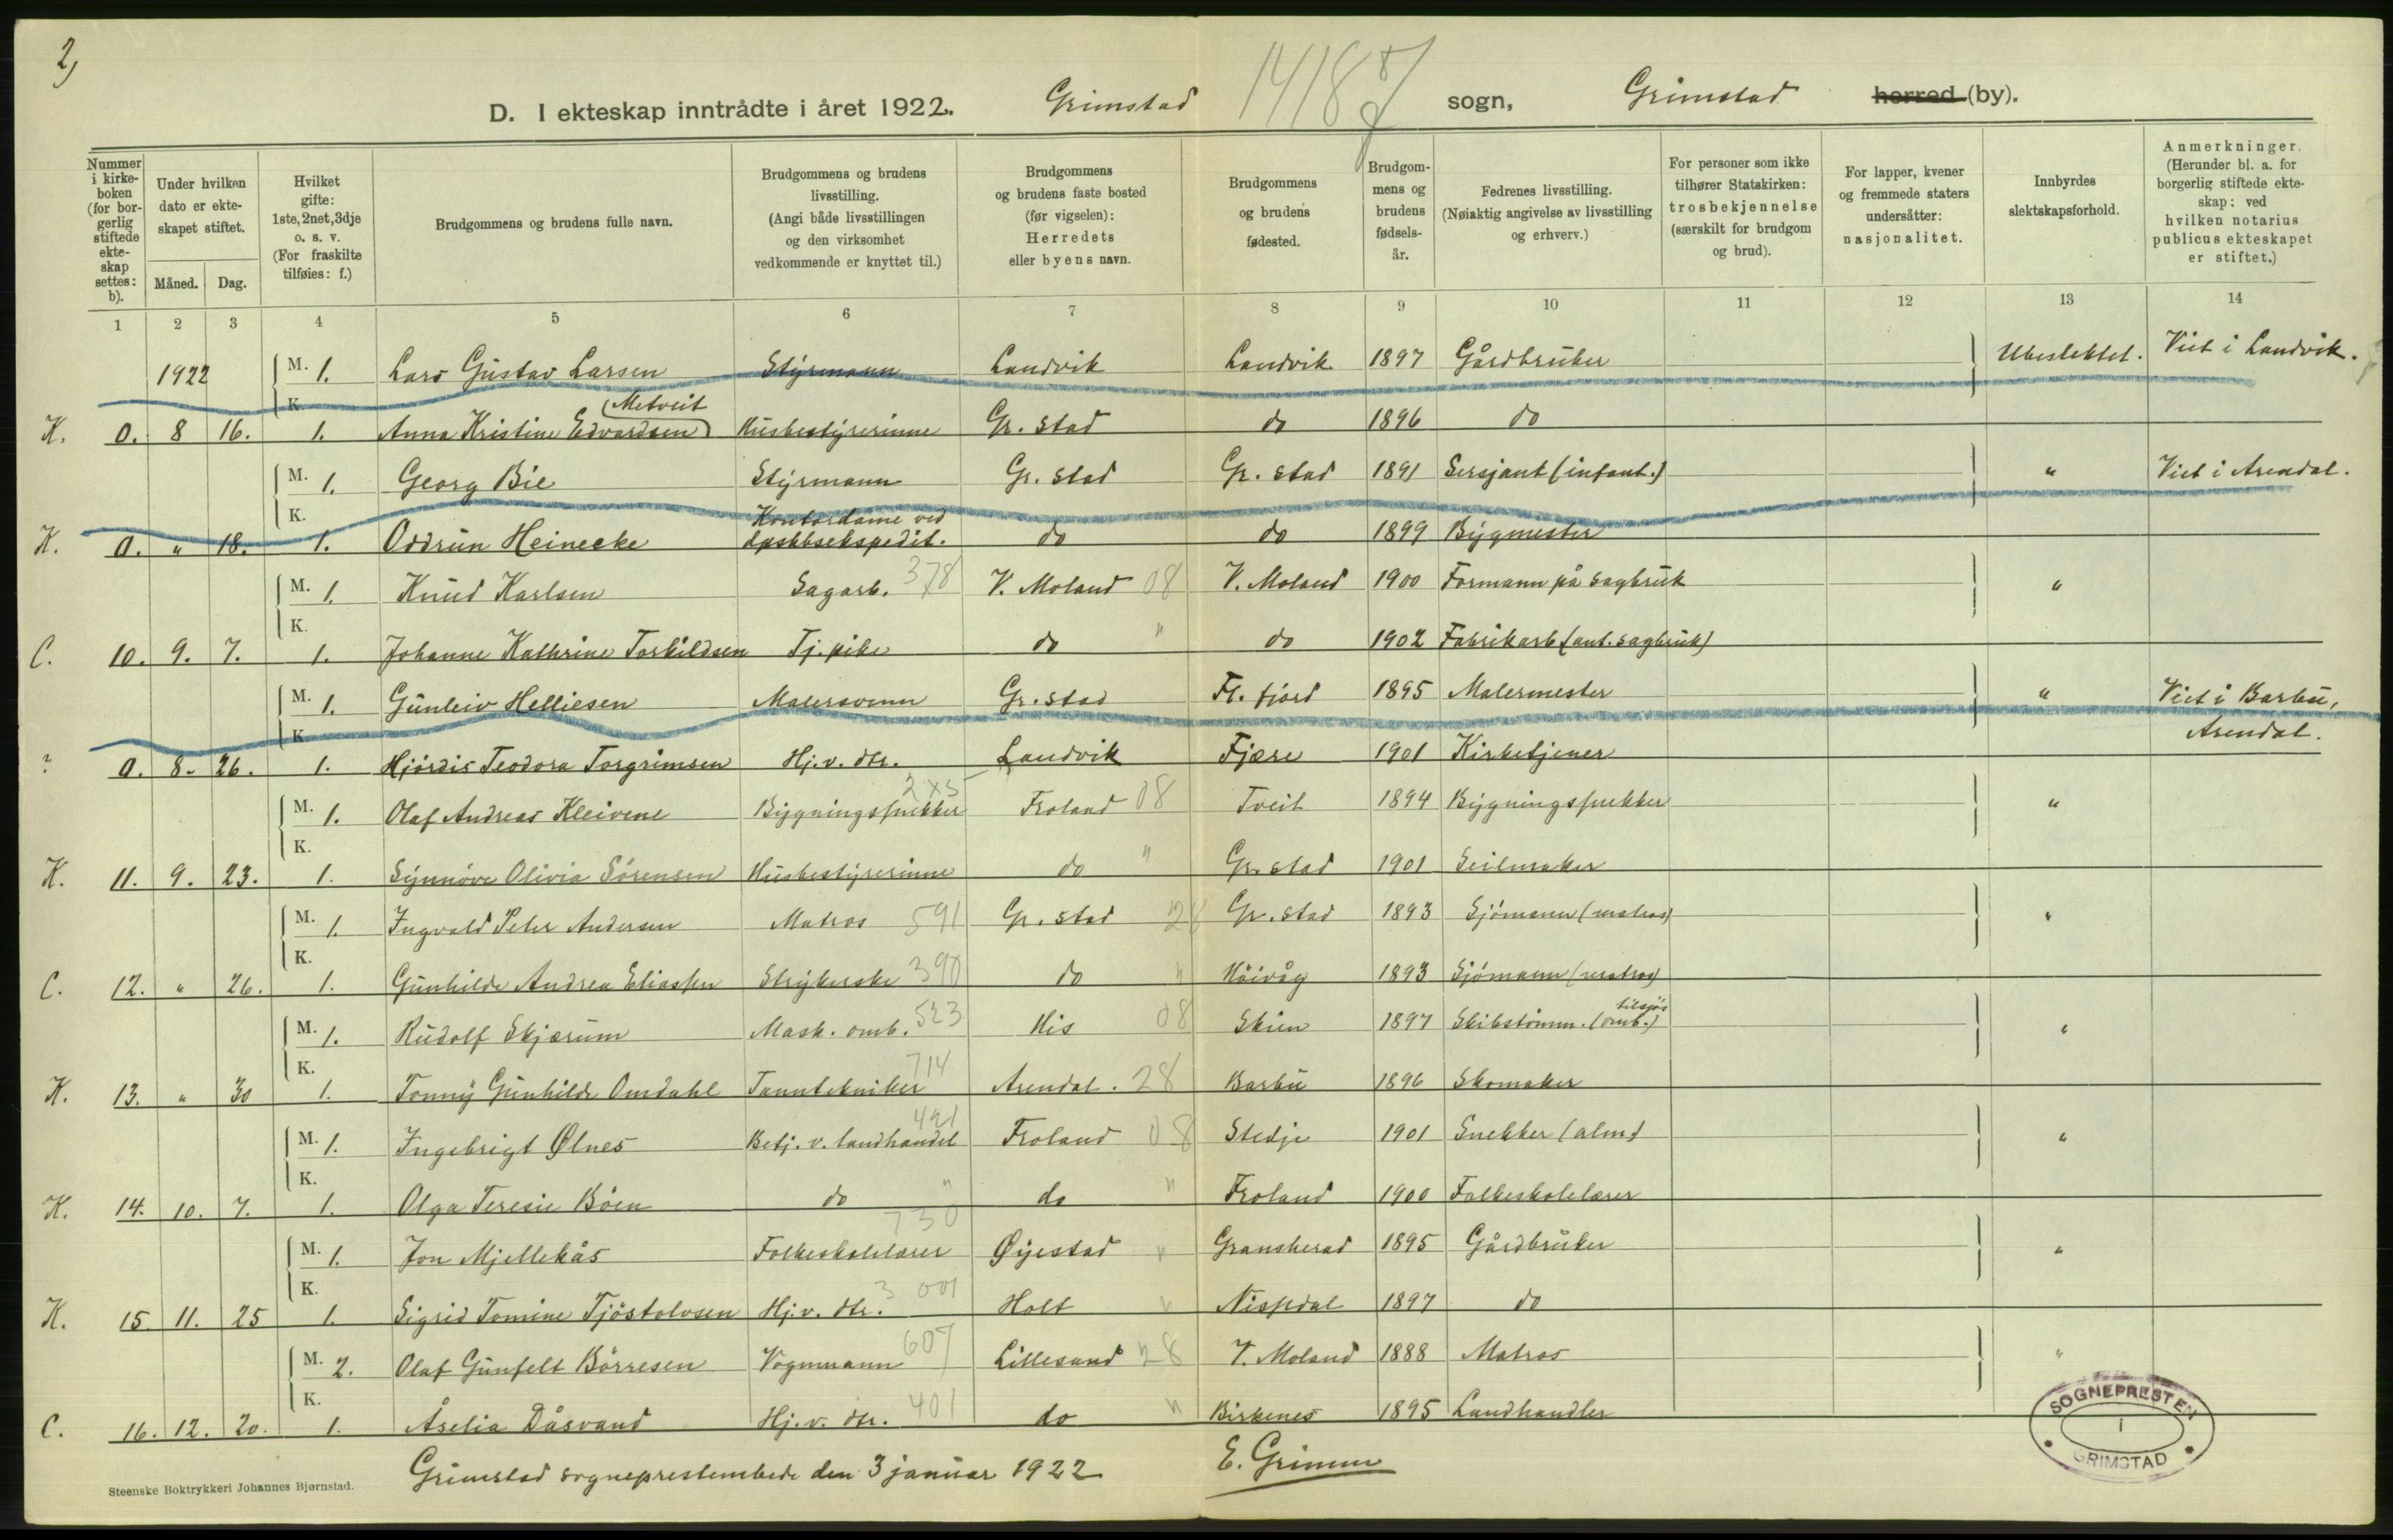 2)
D. I ekteskap inntrådte i året 1922. Grimstad 1418 sogn, Grimstad herred (by).
Nummer i kirkeboken (for borgerlig stiftede ekteskap settes: b).
Under hvilken dato er ekteskapet stiftet.
Måned. Dag.
Hvilket gifte: 1ste, 2net, 3dje o. s. v. (For fraskilte tilføies: f.)
Brudgommens og brudens fulle navn.
Brudgommens og brudens livsstilling. (Angi både livsstillingen og den virksomhet vedkommende er knyttet til.)
Brudgommens og brudens faste bosted (før vigselen): Herredets eller byens navn.
Brudgommens og brudens fødested.
Brudgommens og brudens fødselsår.
Fedrenes livsstilling. (Nøiaktig angivelse av livsstilling og erhverv.)
For personer som ikke tilhører Statskirken: trosbekjennelse (særskilt for brudgom og brud).
For lapper, kvener og fremmede staters undersåtter: nasjonalitet.
Innbyrdes slektskapsforhold.
Anmerkninger. (Herunder bl. a. for borgerlig stiftede ekteskap: ved hvilken notarius publicus ekteskapet er stiftet.)
1 2 3 4 5 6 7 8 9 10 11 12 13 14
1922 M. 1. Lars Gustav Larsen Styrmann Landvik Landvik 1897 Gårdbruker Ubeslektet. Viet i Landvik.
K. 0. 8 16. K. 1. Anna Kristine Edvardsen (Metveit) Husbestyrerinne Gr. stad do 1896 do
M. 1. Georg Bie Styrmann Gr. stad Gr. stad 1891 Sersjant (infant.) " Viet i Arendal.
K. 0. " 18. K. 1. Oddrun Heinecke Kontordame ved dpskbsekspedit. do do 1899 Bygmester
M. 1. Knud Karlsen Sagarb. 378 V. Moland 08 V. Moland 1900 Formann på sagbruk "
C. 10. 9. 7. K. 1. Johanne Kathrine Torkildsen Tj. pike do " do 1902 Fabrikarb (ant. sagbruk)
M. 1. Gunleiv Helliesen Malersvenn Gr. stad Fl. fjord 1895 Malermester " Viet i Barbu, Arendal.
? 0. 8. 26. K. 1. Hjördis Teodora Torgrimsen Hj. v. dtr. Landvik Fjære 1901 Kirketjener
M. 1. Olaf Andreas Kleivene Bygningssnekker Froland 08 Tveit 1894 Bygningssnekker "
K. 11. 9. 23. K. 1. Synnöve Olivia Sörensen Husbestyrerinne do " Gr. stad 1901 Seilmaker
M. 1. Ingvald Peter Andersen Matros 591 Gr. stad 28 Gr. stad 1893 Sjömann (matros) "
C. 12. " 26. K. 1. Gunhilde Andrea Eliassen Strykerske 390 do " Höivåg 1893 Sjömann (matros)
M. 1. Rudolf Skjærum Mask. omb. 523 His 08 Skien 1897 Skibstömm. (omb.) tilsjös "
K. 13. " 30 K. 1. Tonny Gunhilde Omdahl Tanntekniker 714 Arendal. 28 Barbu 1896 Skomaker
M. 1. Ingebrigt Ølnes Betj. v. landhandel 421 Froland 08 Stedje 1901 Snekker (alm.) "
K. 14. 10. 7. K. 1. Olga Teresie Böen do " do " Froland 1900 Folkeskolelærer
M. 1. Jon Mjellekås Folkeskolelærer 730 Øyestad " Gransherad 1895 Gårdbruker "
K. 15. 11. 25 K. 1. Sigrid Tomine Tjöstolvsen Hj. v. dtr. 3 001 Holt " Nissedal 1897 do
M. 2. Olaf Gunfelt Börresen Vognmann 607 Lillesand 28 V. Moland 1888 Matros "
C. 16. 12. 20. K. 1. Åselia Dåsvand Hj. v. dtr. 401 do " Birkenes 1895 Landhandler
Grimstad sogneprestembede den 3 januar 1922 E. Grimm
SOGNEPRESTEN I GRIMSTAD
Steenske Boktrykkeri Johannes Bjørnstad.